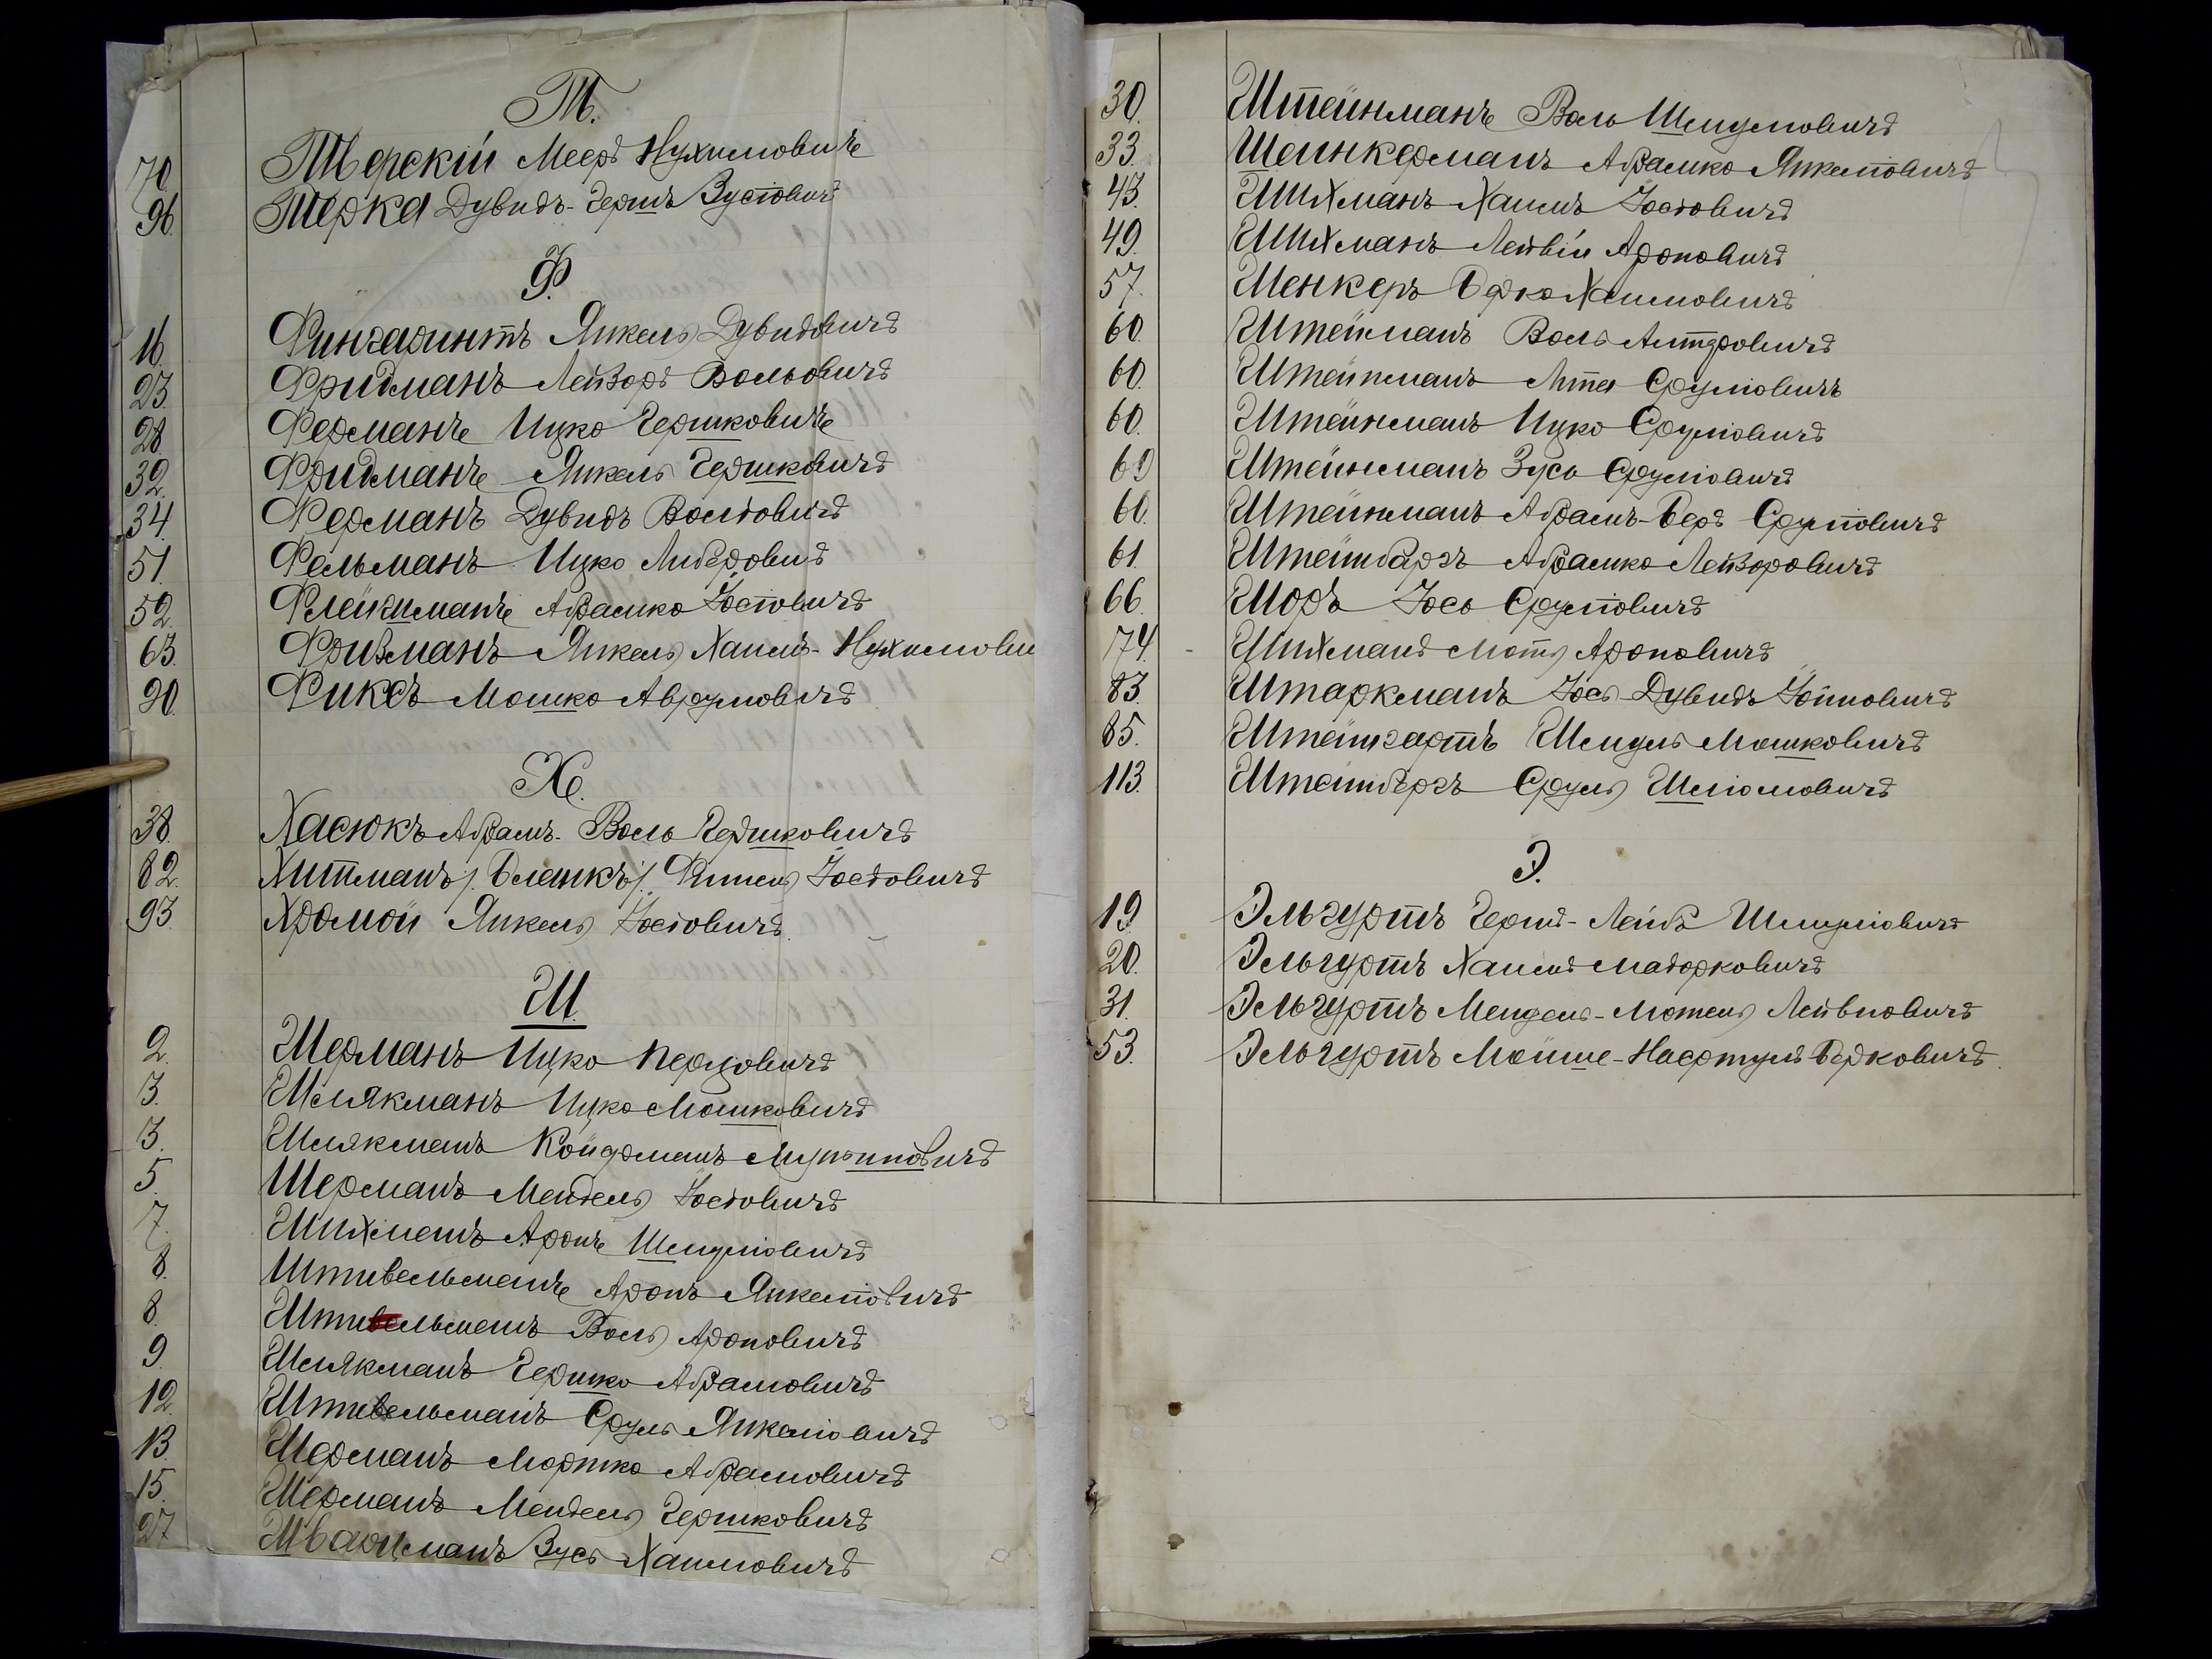 Т.
70. Тверскій Мееръ Нухимовичъ
96. Терка Дувидъ-Гершъ Зусіовичъ
Ф.
16. Фингарингъ Янкель Дувидовичъ
23. Фридманъ Лейзоръ Вольовичъ
28. Ферманъ Ицко Гершковичъ
32. Фридманъ Янкель Гершковичъ
34. Ферманъ Дувидъ Волловичъ
51. Фельманъ Ицко Либеровичъ
52. Флейшманъ Абрамко Іосіовичъ
63. Фридманъ Янкель Хаимъ-Нухимови
90. Фиксъ Мошко Аврумовичъ
Х.
38. Хасюкъ Абрамъ-Воль Гершковичъ
82. Хитманъ /Бланкъ/ Фишель Іосіовичъ
93. Хромой Янкель Іосіовичъ
Ш.
2. Шерманъ Ицко Перцовичъ
3. Шлякманъ Ицко Мошковичъ
3. Шлякманъ Койфманъ
5. Шерманъ Мендель Іосіовичъ
7. Шихманъ Аронъ Шмулювичъ
8. Штивельманъ Аронъ Янкелювичъ
8. Штивельманъ Воль Ароновичъ
9. Шлякманъ Гершко Абрамовичъ
12. Штивельманъ Сруль Янкелювичъ
13. Шерманъ Мортко Абрамовичъ
15. Шерманъ Мендель Гершковичъ
27. Шварцманъ Зусь Хаимовичъ
30. Штейнманъ Воль Шмулювичъ
33. Шейнкерманъ Абрамко Янкелювичъ
43. Шихманъ Хаимъ Іосіовичъ
49. Шихманъ Лейвій Ароновичъ
57. Шенкеръ Берко Хаимовичъ
60. Штейнманъ Воль
60. Штейнманъ Срулювичъ
60. Штейнманъ Ицко Срулювичъ
60. Штейнманъ Зусь Срулювичъ
60. Штейнманъ Абрамъ-Беръ Срулювичъ
61. Штейнбаргъ Абрамко Лейзоровичъ
66. Шоръ Іось Срулювичъ
74. Шихманъ Мотя Ароновичъ
83. Штаркманъ Іось-Дувидъ
85. Штейнгартъ Шмуль Мошковичъ
113. Штейнбергъ Сруль Шлюмовичъ
Э.
19. Эльгуртъ Гершъ-Лейба Шмулювичъ
20. Эльгуртъ Хаимъ Мадорковичъ
31. Эльгуртъ Мендель-Мотель Лейвиовичъ
53. Эльгуртъ Мойше-Нафтулъ Берковичъ